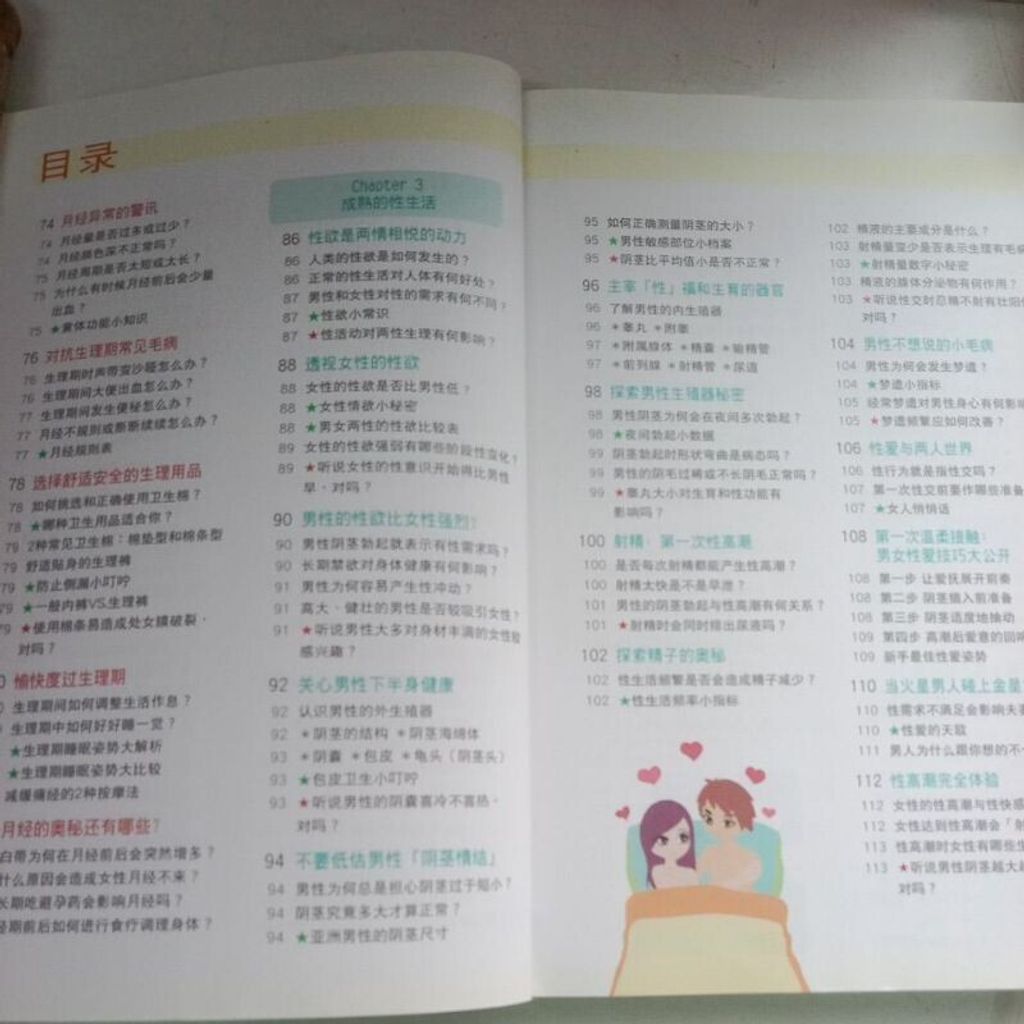 目录
74 月经异常的警讯
74 月经量是否过多或过少？
74 月经颜色深不正常吗？
75 月经周期是否太短或太长？
75 为什么有时候月经前后会少量
出血？
75 ★黄体功能小知识
76 对抗生理期常见毛病
76 生理期时声带变沙哑怎么办？
76 生理期间大便出血怎么办？
77 生理期间发生便秘怎么办？
77 月经不规则或断断续续怎么办？
77 ★月经规则表
78 选择舒适安全的生理用品
78 如何挑选和正确使用卫生棉？
78 ★哪种卫生用品适合你？
79 2种常见卫生棉：棉垫型和棉条型
79 舒适贴身的生理裤
79 ★防止侧漏小叮咛
79 ★一般内裤VS.生理裤
79 ★使用棉条易造成处女膜破裂，
对吗？
0 愉快度过生理期
生理期间如何调整生活作息？
生理期中如何好好睡一觉？
★生理期睡眠姿势大解析
★生理期睡眠姿势大比较
减缓痛经的2种按摩法
月经的奥秘还有哪些？
白带为何在月经前后会突然增多？
什么原因会造成女性月经不来？
长期吃避孕药会影响月经吗？
经期前后如何进行食疗调理身体？
Chapter 3
成熟的性生活
86 性欲是两情相悦的动力
86 人类的性欲是如何发生的？
86 正常的性生活对人体有何好处？
87 男性和女性对性的需求有何不同？
87 ★性欲小常识
87 ★性活动对两性生理有何影响？
88 透视女性的性欲
88 女性的性欲是否比男性低？
88 ★女性情欲小秘密
88 ★男女两性的性欲比较表
89 女性的性欲强弱有哪些阶段性变化？
89 ★听说女性的性意识开始得比男性
早，对吗？
90 男性的性欲比女性强烈？
90 男性阴茎勃起就表示有性需求吗？
90 长期禁欲对身体健康有何影响？
91 男性为何容易产生性冲动？
91 高大、健壮的男性是否较吸引女性？
91 ★听说男性大多对身材丰满的女性较
感兴趣？
92 关心男性下半身健康
92 认识男性的外生殖器
92 ＊阴茎的结构 ＊阴茎海绵体
93 ＊阴囊 ＊包皮 ＊龟头（阴茎头）
93 ★包皮卫生小叮咛
93 ★听说男性的阴囊喜冷不喜热，
对吗？
94 不要低估男性「阴茎情结」
94 男性为何总是担心阴茎过于短小？
94 阴茎究竟多大才算正常？
94 ★亚洲男性的阴茎尺寸
95 如何正确测量阴茎的大小？
95 ★男性敏感部位小档案
95 ★阴茎比平均值小是否不正常？
96 主宰「性」福和生育的器官
96 了解男性的内生殖器
96 ＊睾丸 ＊附睾
97 ＊附属腺体 ＊精囊 ＊输精管
97 ＊前列腺 ＊射精管 ＊尿道
98 探索男性生殖器秘密
98 男性阴茎为何会在夜间多次勃起？
98 ★夜间勃起小数据
99 阴茎勃起时形状弯曲是病态吗？
99 男性的阴毛过稀或不长阴毛正常吗？
99 ★睾丸大小对生育和性功能有
影响吗？
100 射精，第一次性高潮
100 是否每次射精都能产生性高潮？
100 射精太快是不是早泄？
101 男性的阴茎勃起与性高潮有何关系？
101 ★射精时会同时排出尿液吗？
102 探索精子的奥秘
102 性生活频繁是否会造成精子减少？
102 ★性生活频率小指标
102 精液的主要成分是什么？
103 射精量变少是否表示生理有毛病
103 ★射精量数字小秘密
103 精液的腺体分泌物有何作用？
103 ★听说性交时忍精不射有壮阳
对吗？
104 男性不想说的小毛病
104 男性为何会发生梦遗？
104 ★梦遗小指标
105 经常梦遗对男性身心有何影响
105 ★梦遗频繁应如何改善？
106 性爱与两人世界
106 性行为就是指性交吗？
107 第一次性交前要作哪些准备
107 ★女人悄悄话
108 第一次温柔接触：
男女性爱技巧大公开
108 第一步 让爱抚展开前奏
108 第二步 阴茎插入前准备
108 第三步 阴茎适度地抽动
109 第四步 高潮后爱意的回响
109 新手最佳性爱姿势
110 当火星男人碰上金星
110 性需求不满足会影响夫妻
110 ★性爱的天敌
111 男人为什么跟你想的不一
112 性高潮完全体验
112 女性的性高潮与性快感
112 女性达到性高潮会「射
113 性高潮时女性有哪些生
113 ★听说男性阴茎越大越
对吗？